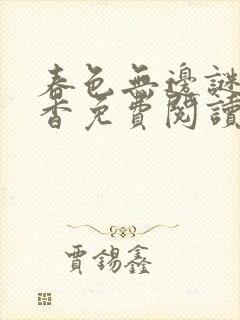 春色無邊謎
香免費閱讀
賈錫鑫